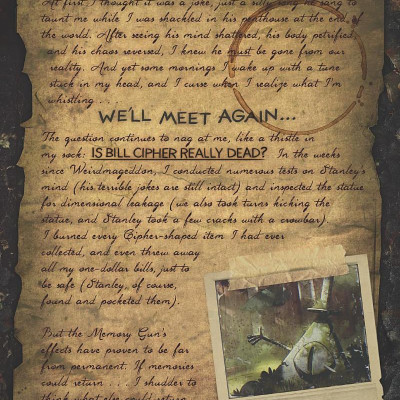 At first I thought it was a joke, just a silly song he sang to
taunt me while I was shackled in his penthouse at the end of
the world. After seeing his mind shattered, his body petrified,
and his chaos reversed, I knew he must be gone from our
reality. And yet some mornings I wake up with a tune
stuck in my head, and I curse when I realize what I'm
whistling . . .
WE'LL MEET AGAIN...
The question continues to nag at me, like a thistle in
my sock. IS BILL CIPHER REALLY DEAD? In the weeks
since Weirdmageddon, I conducted numerous tests on Stanley's
mind (his terrible jokes are still intact) and inspected the statue
for dimensional leakage (we also took turns kicking the
statue, and Stanley took a few cracks with a crowbar).
I burned every Cipher-shaped item I had ever
collected, and even threw away
all my one-dollar bills, just to
be safe (Stanley, of course,
found and pocketed them).
But the Memory Gun's
effects have proven to be far
from permanent. If memories
could return . . . I shudder to
think what else could return